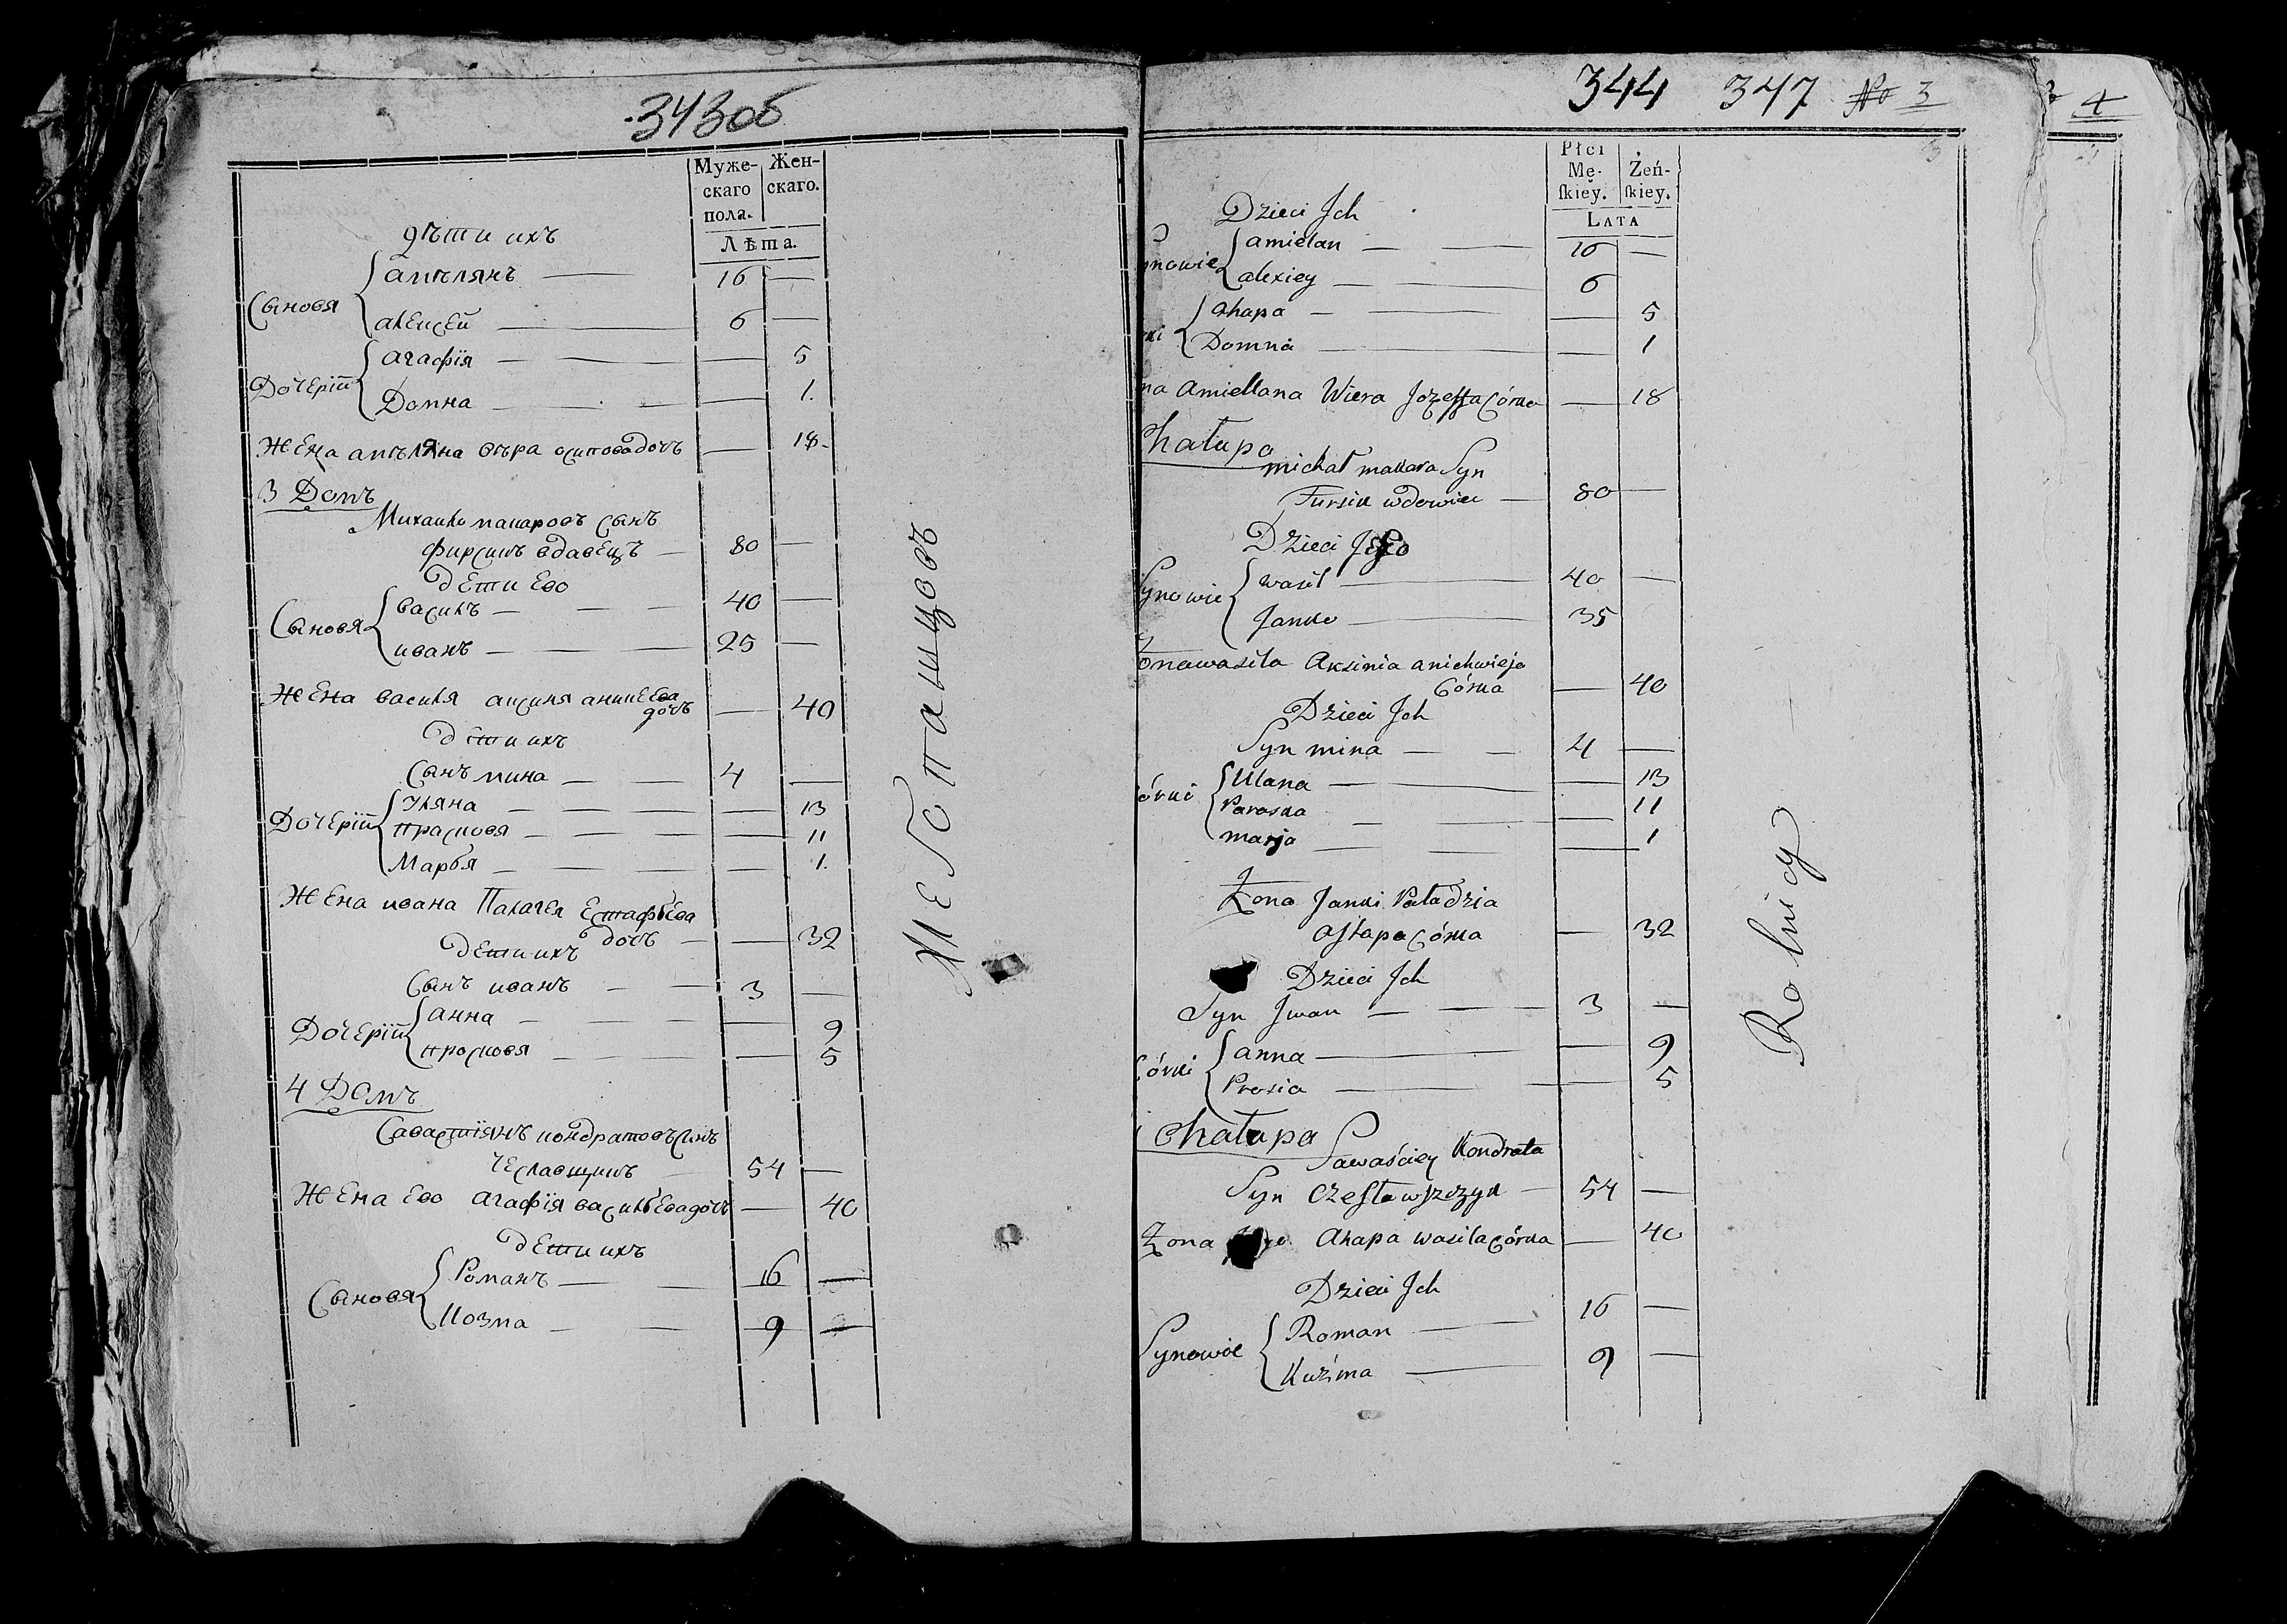 343об
Муже- Жен-
скаго скаго.
пола.
Лѣта.
дѣти ихъ
Сыновя амѣлянъ — 16 —
алексей — 6 —
Дочерїи агафїя — — 5
Домна — — 1.
Жена амѣляна вѣра осипова дочъ — 18-
3 Домъ
Михайло макаровъ сынъ
фирсикъ вдавецъ — 80 —
дети Ево
Сыновя василъ — 40 —
иванъ — 25 —
Жена василя аксиня аникеева
дочъ — 40
дети ихъ
Сынъ мина — 4 —
Дочерїи Уляна — — 13
прасковя — — 11
Марья — — 1.
Жена ивана Палагея Естафьева
дочъ — — 32
дети ихъ
Сынъ иванъ — 3 —
Дочерїи анна — — 9
прасковя — — 5
4 Домъ
Савастїянъ кондратовъ сынъ
Чеславщикъ 54 —
Жена Ево агафїя васильева дочъ — 40
дети ихъ
Сыновя Романъ — 16 —
Козма — 9 —
344 347 No 3
4
Płci
Mę- Żeń-
skiey. skiey.
LATA
Dzieci Jch
ynowie amielan — 16 —
alexiey — 6
ahapa — — 5
Domna — — 1
na amiellana Wiera Jozeffa Córka — 18
Chałupa
michał makara Syn
Fursik wdowiec — 80 —
Dzieci Jego
Synowie wasil — 40 —
Janko — 35
Żona wasila Aksinia anichwieja
Córka — 40
Dzieci Jch
Syn mina — 4 —
órki Ulana — — 13
Paraska — — 11
marja — — 1
Żona Janki Paładzia
Astapa Córka — 32
Dzieci Jch
Syn Jwan — 3 —
Córki anna — — 9
Prosia — — 5
Chałupa
Sawaściey Kondrata
Syn Czesławszczyk — 54 —
Żona Ahapa wasila córka — 40
Dzieci Jch
Synowie Roman — 16 —
Kuźma — 9 —
Rolnicy